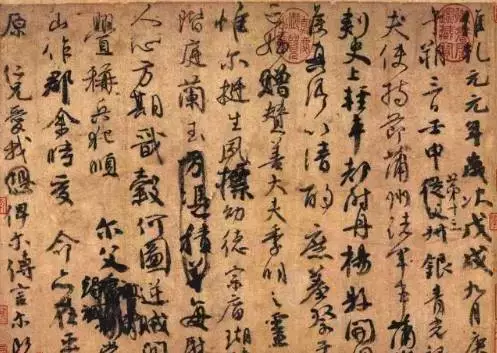 維乾元元年歲次戊戌九月庚
午朔三日壬申第十三從父叔銀青光
夫使持節蒲州諸軍事蒲
刺史上輕車都尉丹楊縣開
侯真卿以清酌庶羞祭
亡姪贈贊善大夫季明之靈
惟爾挺生夙標幼德宗廟瑚
階庭蘭玉方憑積善每慰
人心方期戩穀何圖逆賊閒
釁稱兵犯順爾父常
山作郡余時受命亦在平
原仁兄愛我俾爾傳言爾